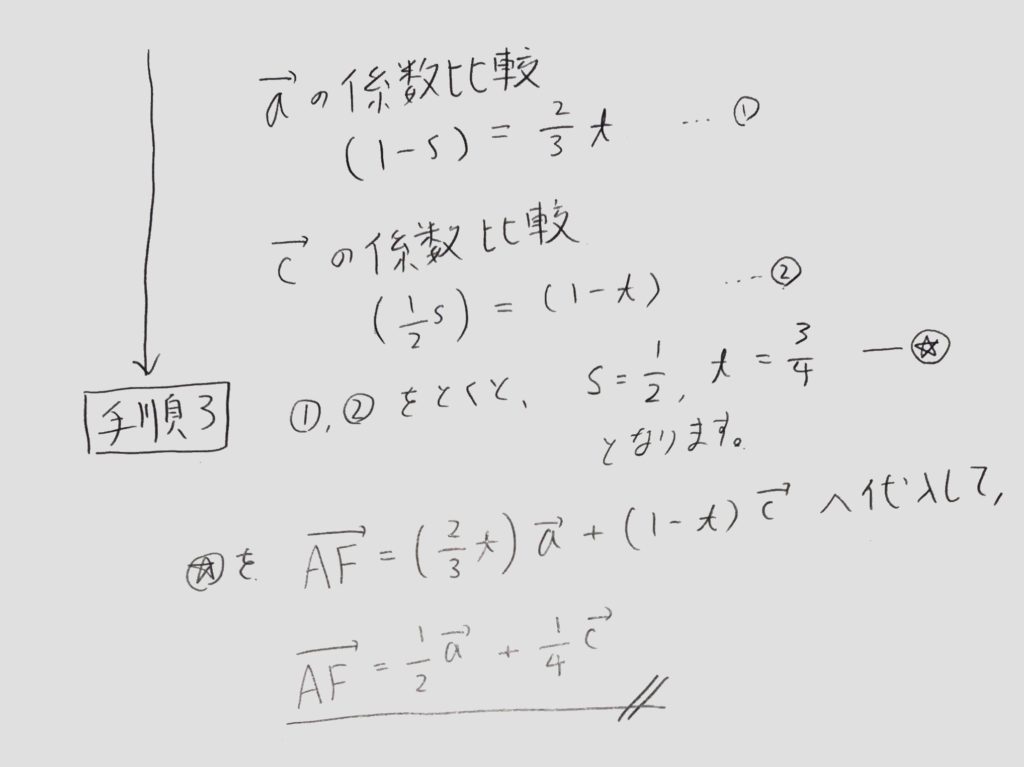 a→の係数比較
(1-s) = 2/3 t … ①
c→の係数比較
(1/2 s) = (1-t) … ②
手順3 ①,②をとくと、 s = 1/2, t = 3/4 — ☆
となります。
☆を AF→ = (2/3 t) a→ + (1-t) c→ へ代入して,
AF→ = 1/2 a→ + 1/4 c→